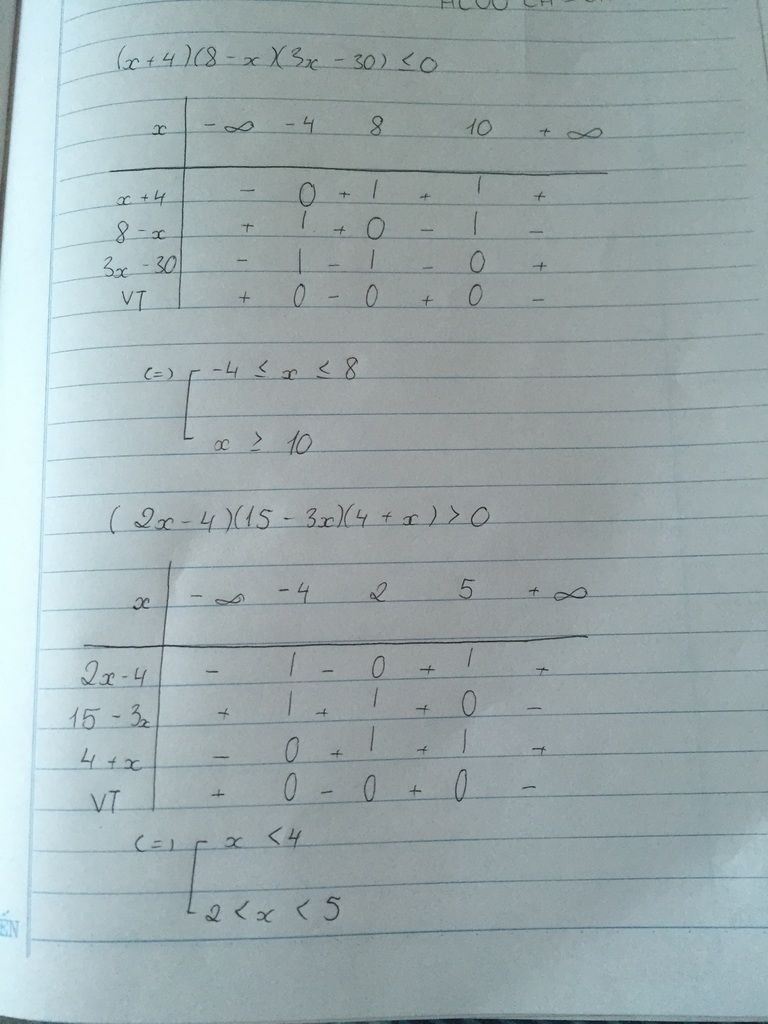 (x+4)(8-x)(3x-30) ≤ 0
x -∞ -4 8 10 +∞
x+4 - 0 + | + | +
8-x + | + 0 - | -
3x-30 - | - | - 0 +
VT + 0 - 0 + 0 -
(=) [ -4 ≤ x ≤ 8
x ≥ 10
(2x-4)(15-3x)(4+x) > 0
x -∞ -4 2 5 +∞
2x-4 - | - 0 + | +
15-3x + | + | + 0 -
4+x - 0 + | + | +
VT + 0 - 0 + 0 -
(=) [ x < 4
2 < x < 5
ẾN